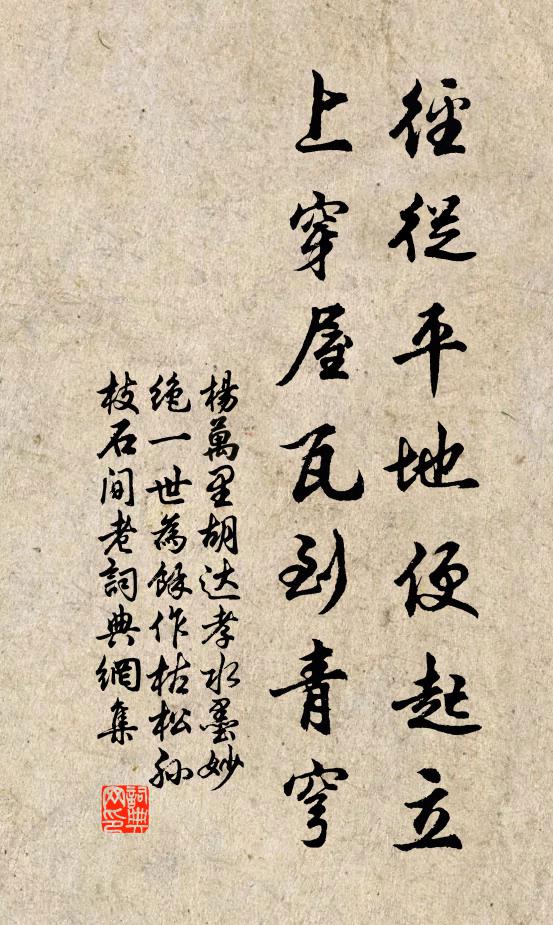 徑從平地便起立
上穿屋瓦到青穹
楊萬里胡达孝水墨妙
绝一世為餘作枯松孙
枝石间老詞典網集
詞典網印